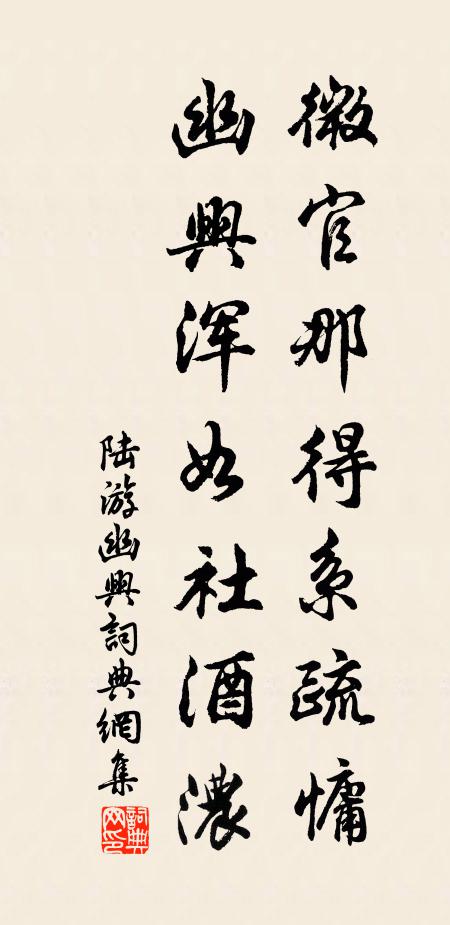 微官那得系疏慵
幽興浑如社酒濃
陆游幽興詞典網集
詞典网印